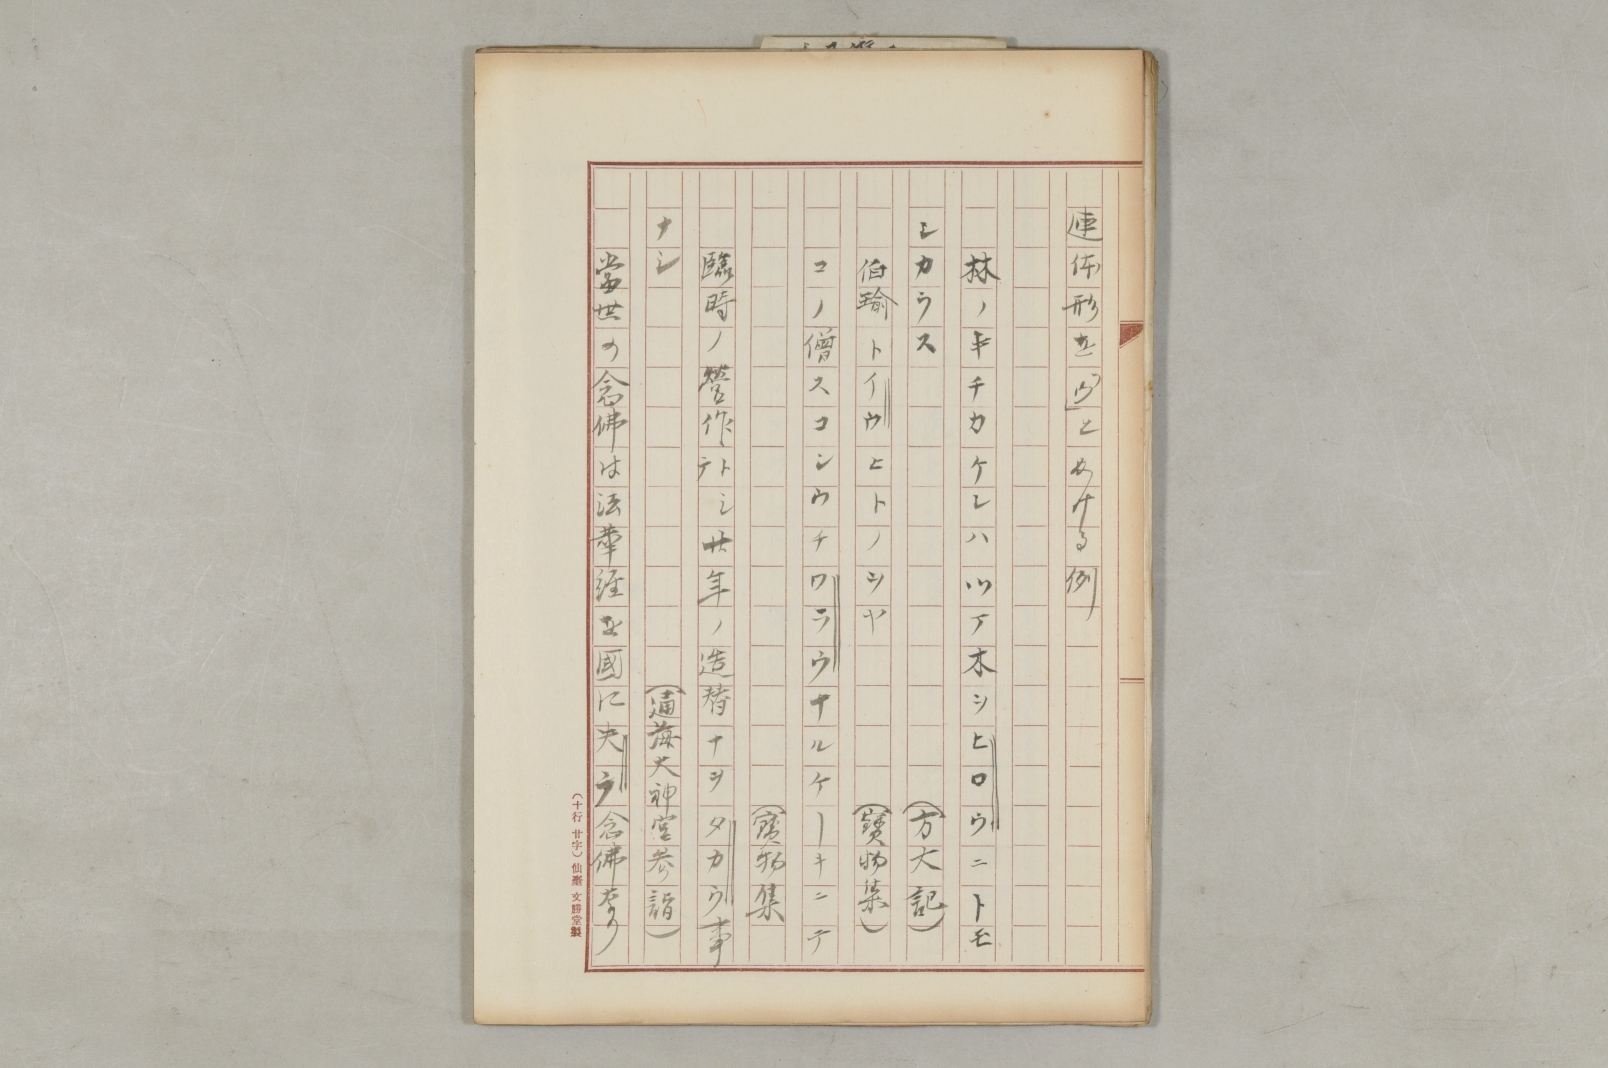 連体形を「ウ」とかける例
林ノ木チカケレハツア木シヒロウニトモ
シカラス
(方大記)
伯瑜トイウヒトノシヤ
(寶物集)
コノ僧スコシウチワラウナルケーキニテ
(寶物集
臨時ノ營作テトシ廿年ノ造替ナヲタカウ事
ナシ
(通海大神宮参詣)
當世の念佛は法華經を國に失ラ念佛なり
(十行 廿字) 仙臺 文勝堂製